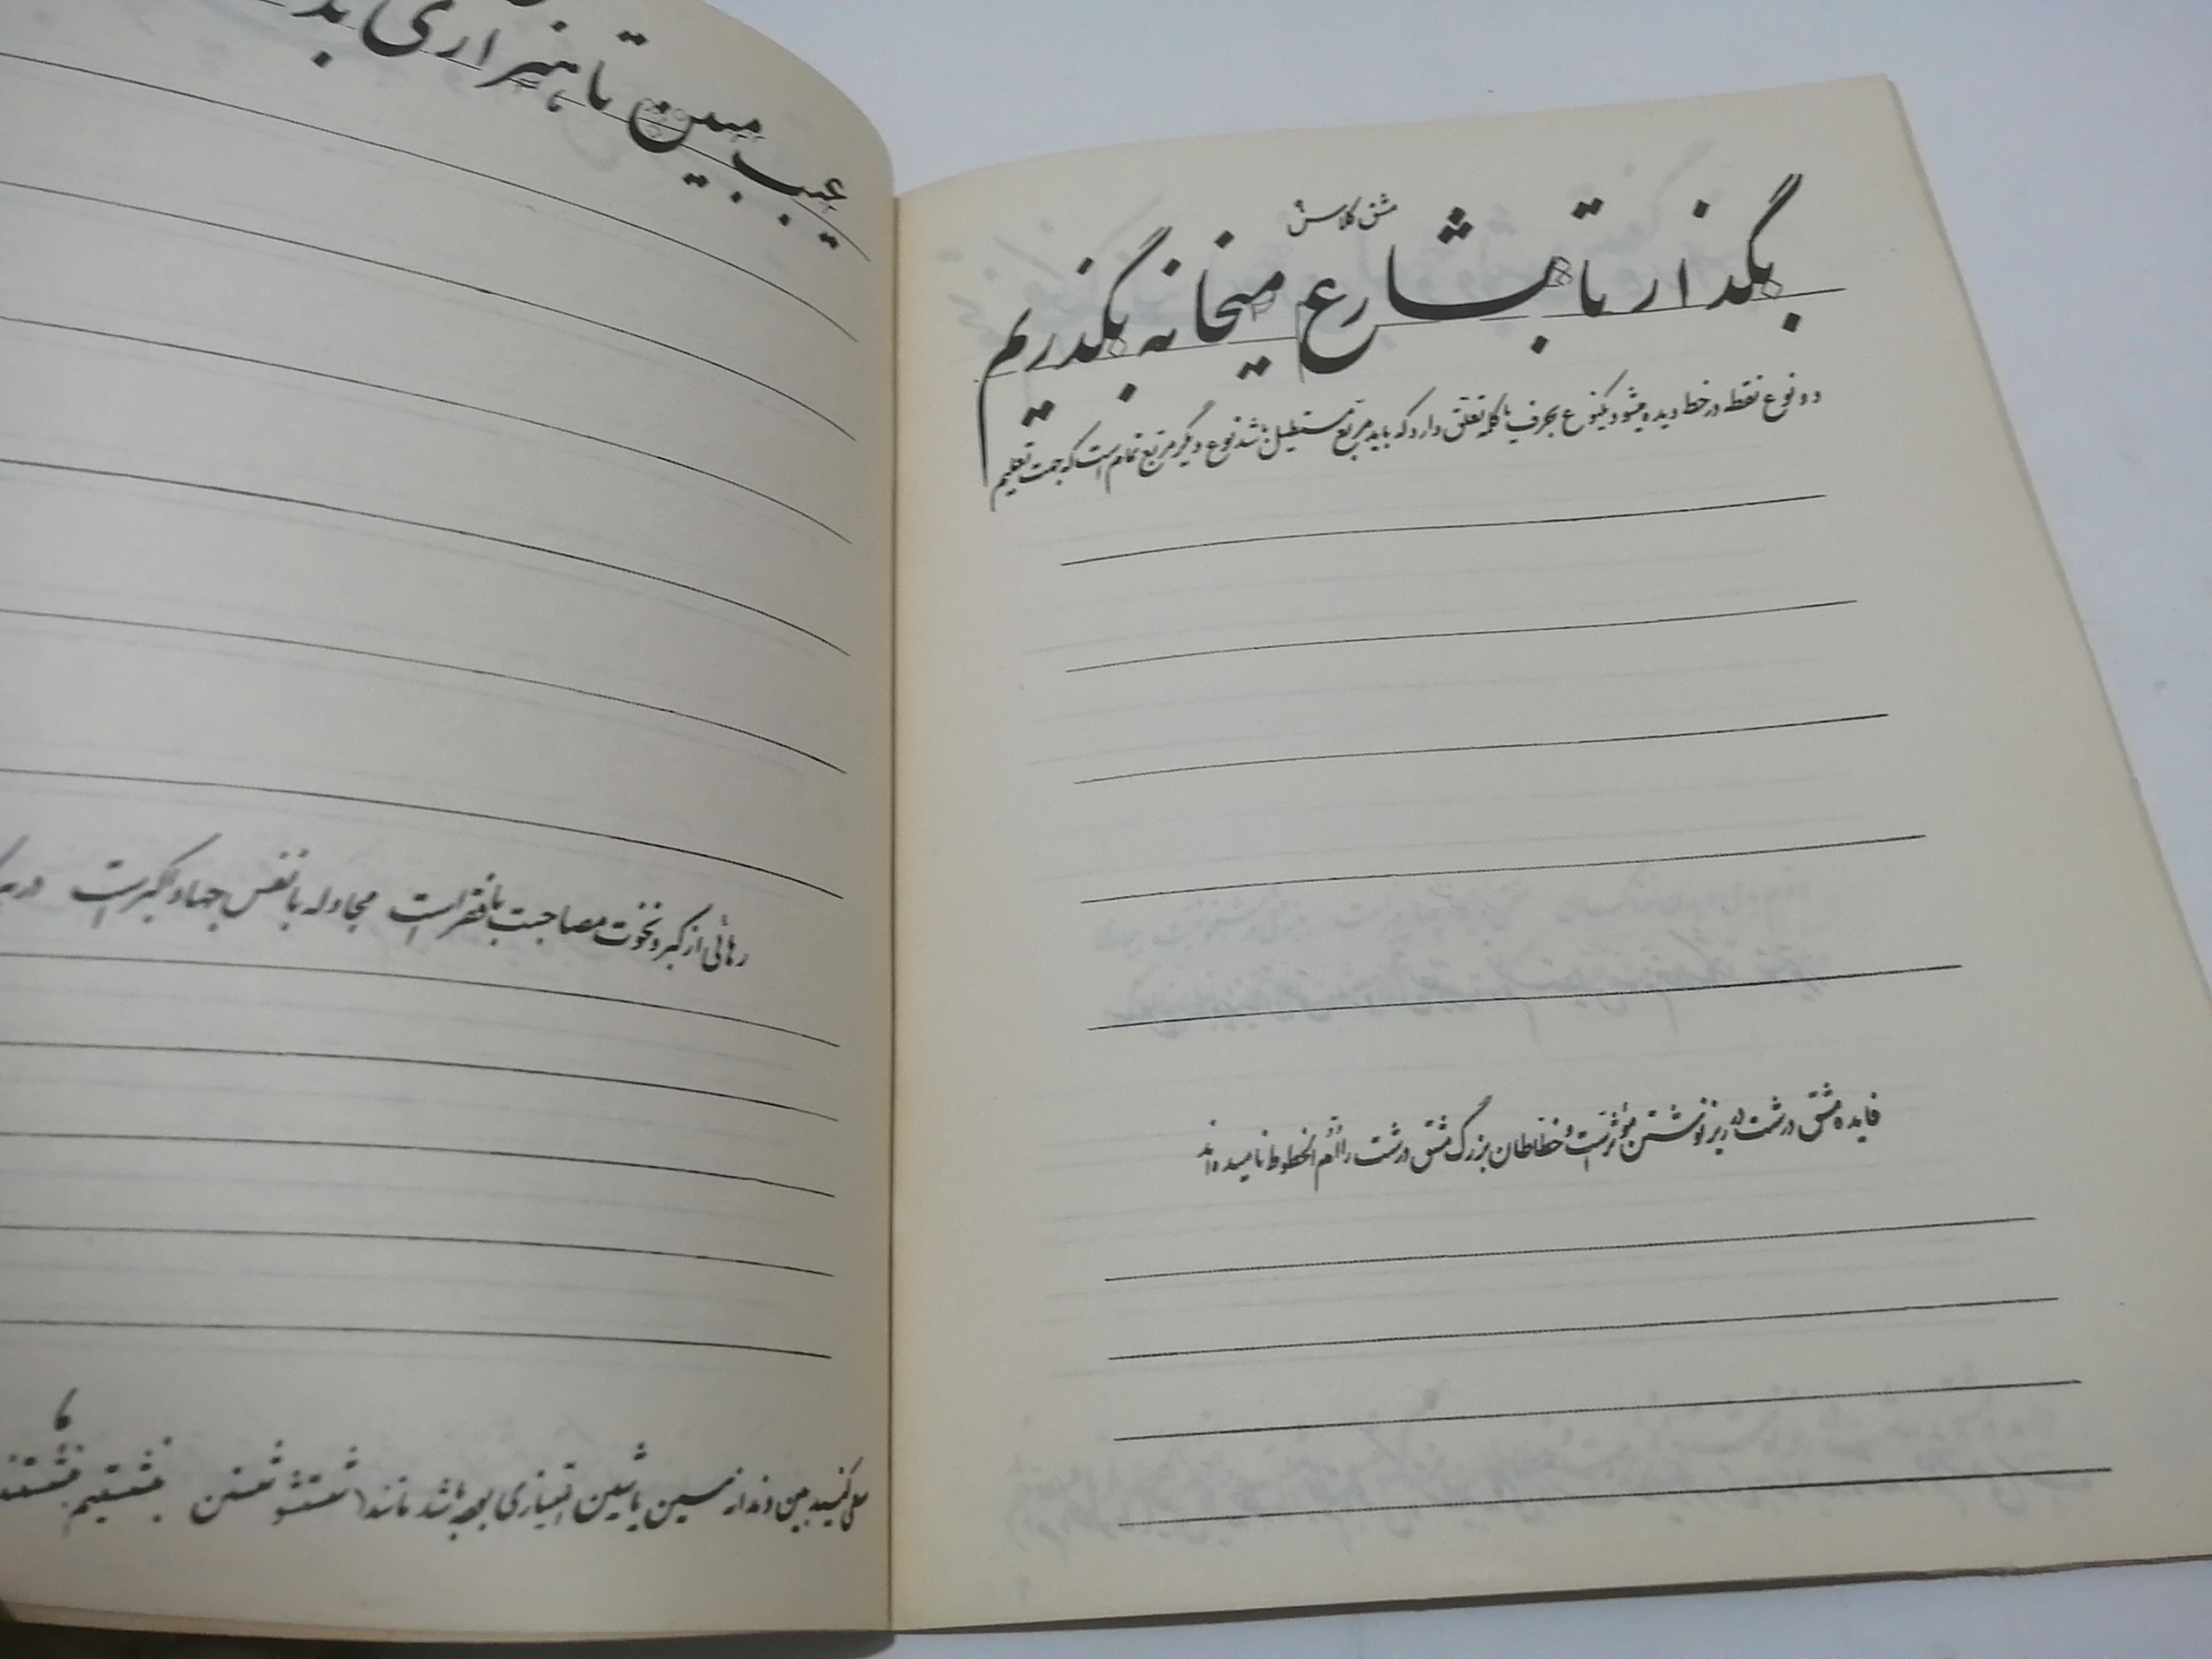 مشق کلاس
بگذار تا بشارع میخانه بگذریم
دو نوع نقطه در خط دیده میشود یکنوع بحرف یا کلمه تعلق دارد که باید مربع مستطیل باشد نوع دیگر مربع تمام است که جهت تعلیم
فایده مشق درشت در ریز نوشتن مؤثر است و خطاطان بزرگ مشق درشت را اُمّ الخطوط نامیده‌اند
عیب مبین تا هنر اری بد
رهائی از کبر و نخوت مصاحبت با فقر است مجادله با نفس جهاد اکبر است
سعی کنید بین دندانه سین یا شین امتیازی بوجه باشد مانند شستشو شستن نشستیم نشستند